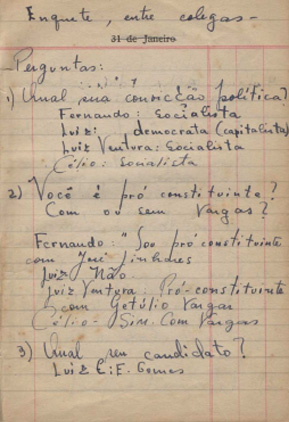 Enquete, entre colegas -
31 de Janeiro
Perguntas:
1) Qual sua convicção política?
Fernando: Socialista
Luiz: democrata (capitalista)
Luiz Ventura: Socialista
Célio: Socialista
2) Você é pró constituinte?
Com ou sem Vargas?
Fernando: "Sou pró constituinte
com José Linhares
Luiz Não.
Luiz Ventura: Pró-constituinte
com Getúlio Vargas
Célio - Sim. Com Vargas
3) Qual seu candidato?
Luiz E: E. Gomes